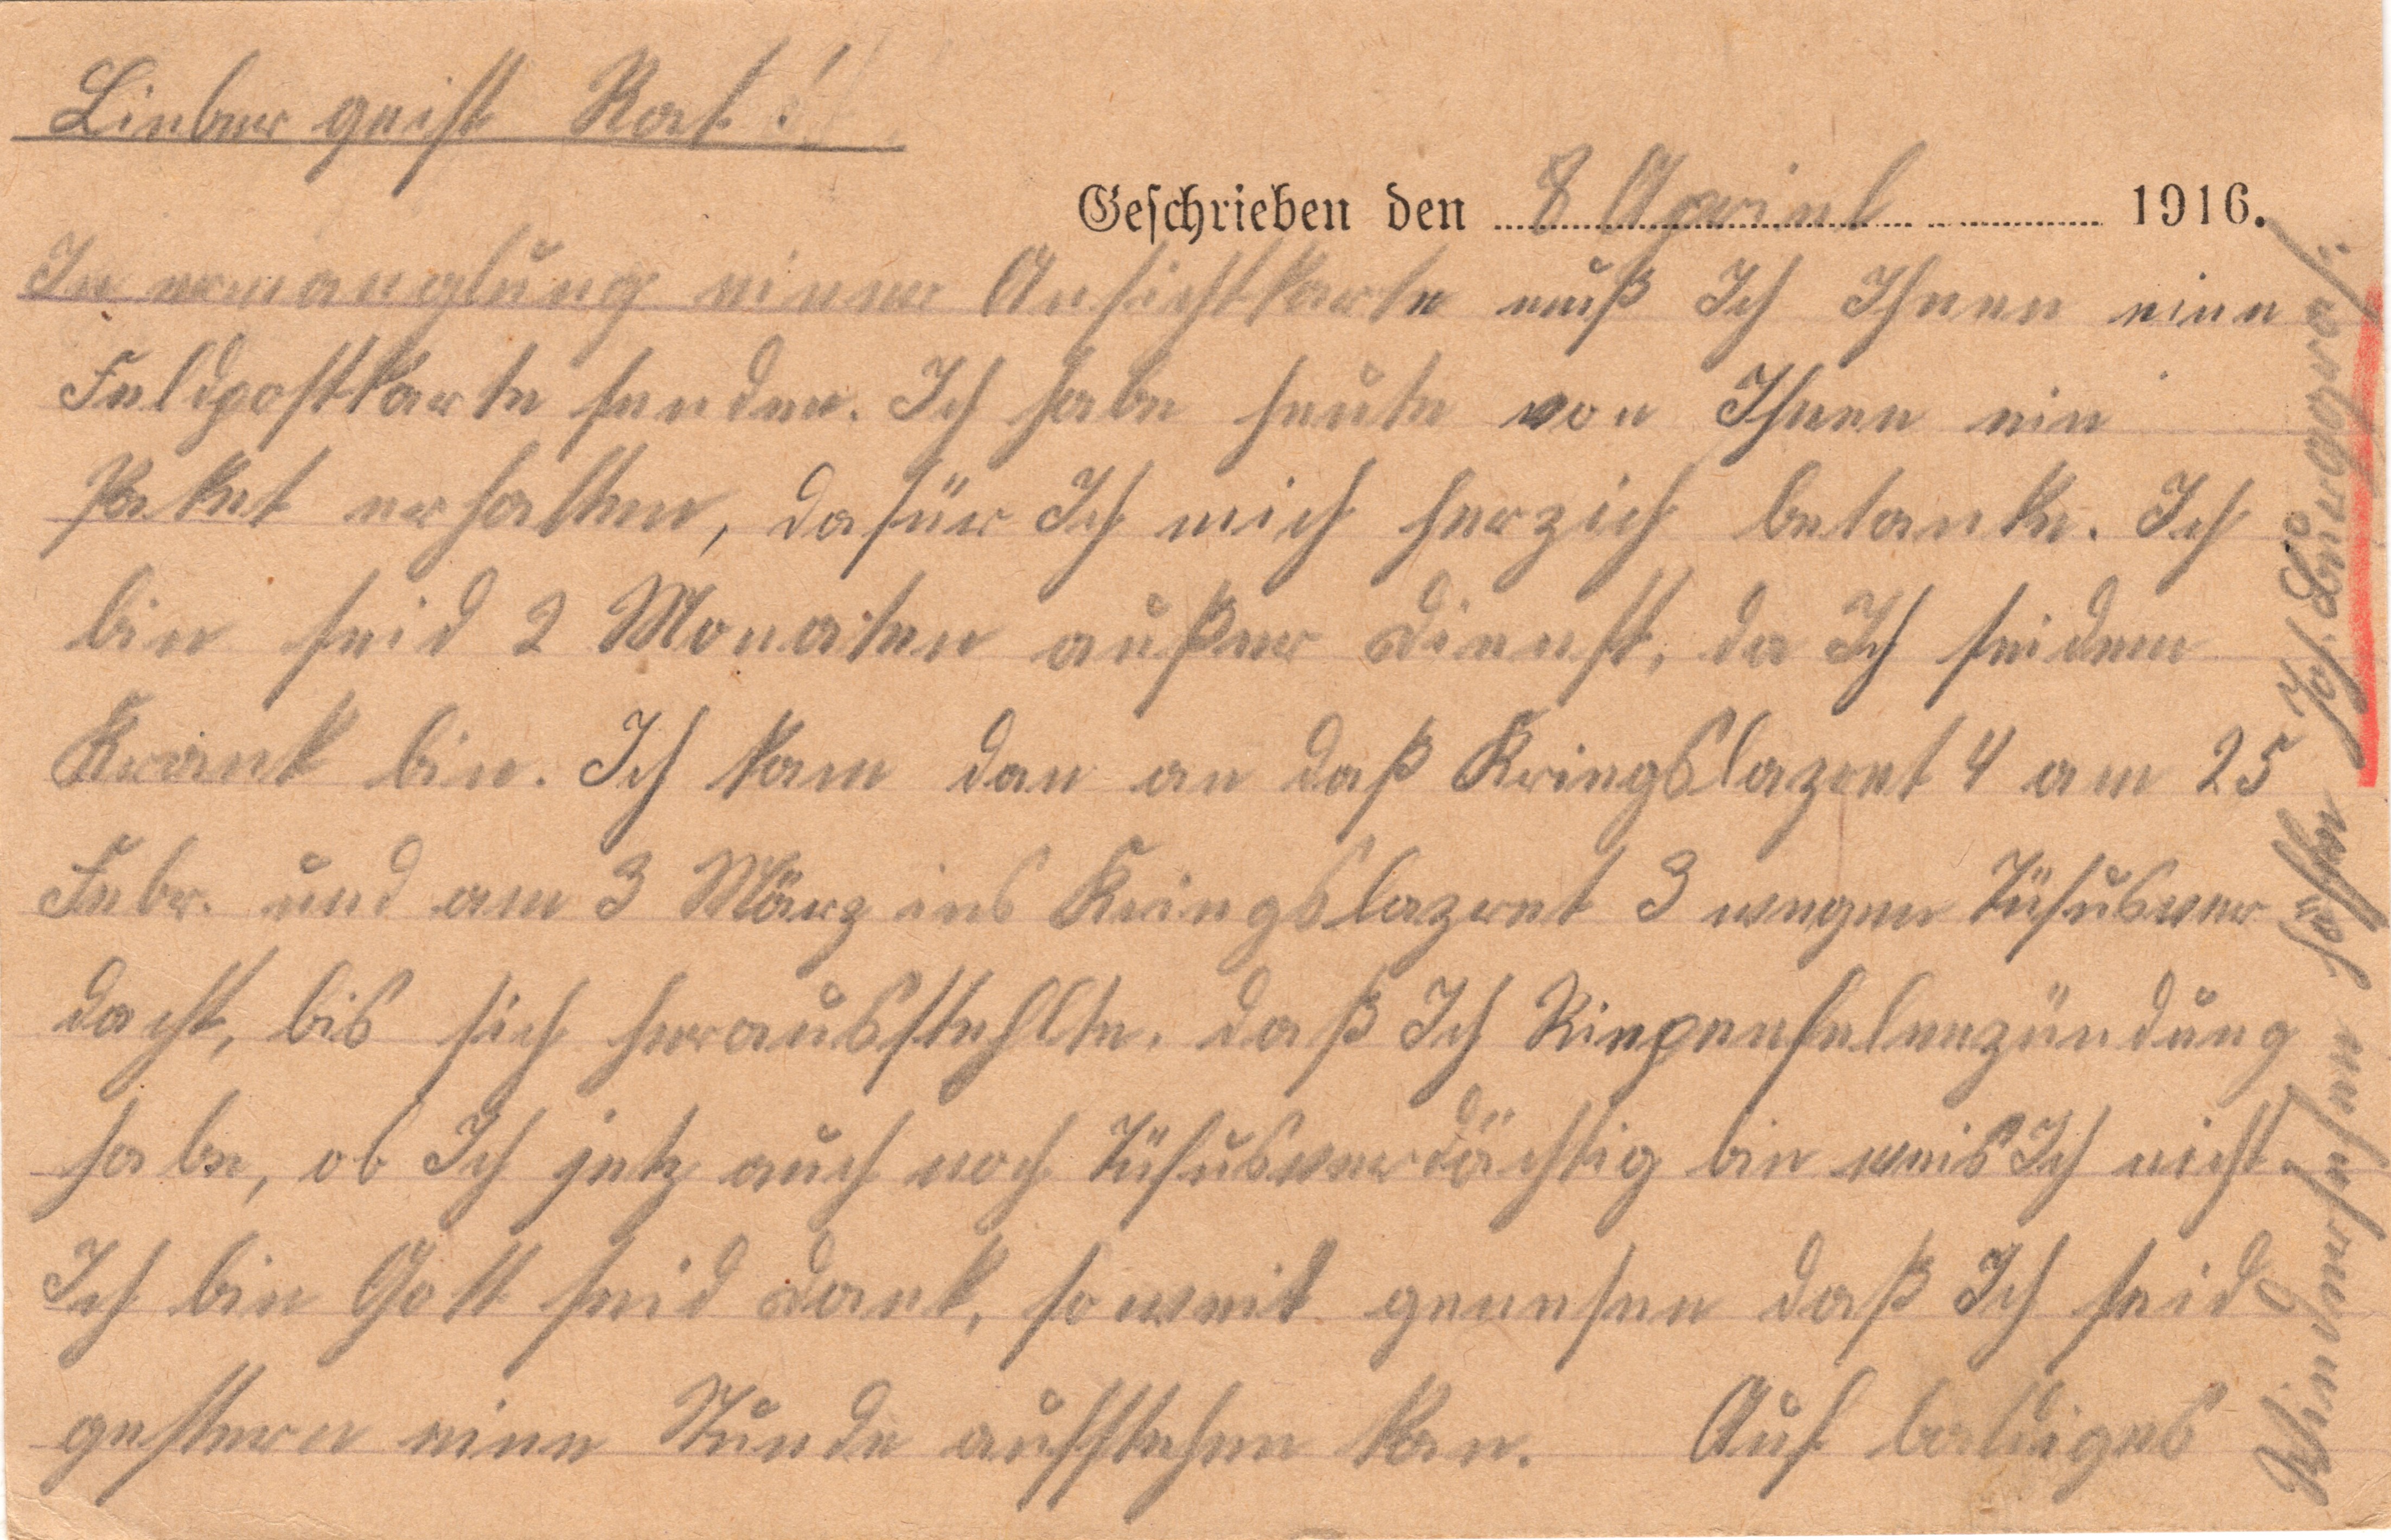 Lieber geist Rat!
Geschrieben den 8 Apriel 1916.
In ermanglung einer Ansichtkarte muß Ich Ihnen eine
Feldpostkarte senden. Ich habe heute von Ihnen ein
Paket erhalten, dafür Ich mich herzich betanke. Ich
bin seid 2 Monaten außer Dienst, da Ich seidem
Krank bin. Ich kam dan an daß Kriegslazret 4 am 25
Febr. und am 3 März ins Kriegslazret 3 wegen Tüfusver
dacht, bis sich herausstehlte, daß Ich Riepenfelenzündung
habe, ob Ich jetz auch noch Tüfusverdächtig bin weis Ich nicht.
Ich bin Gott seid Dank, soweit genesen daß Ich seid
gestern eine Stunde aufstehen kan. Auf baldiges
Wiedersehen hoffen Jos.